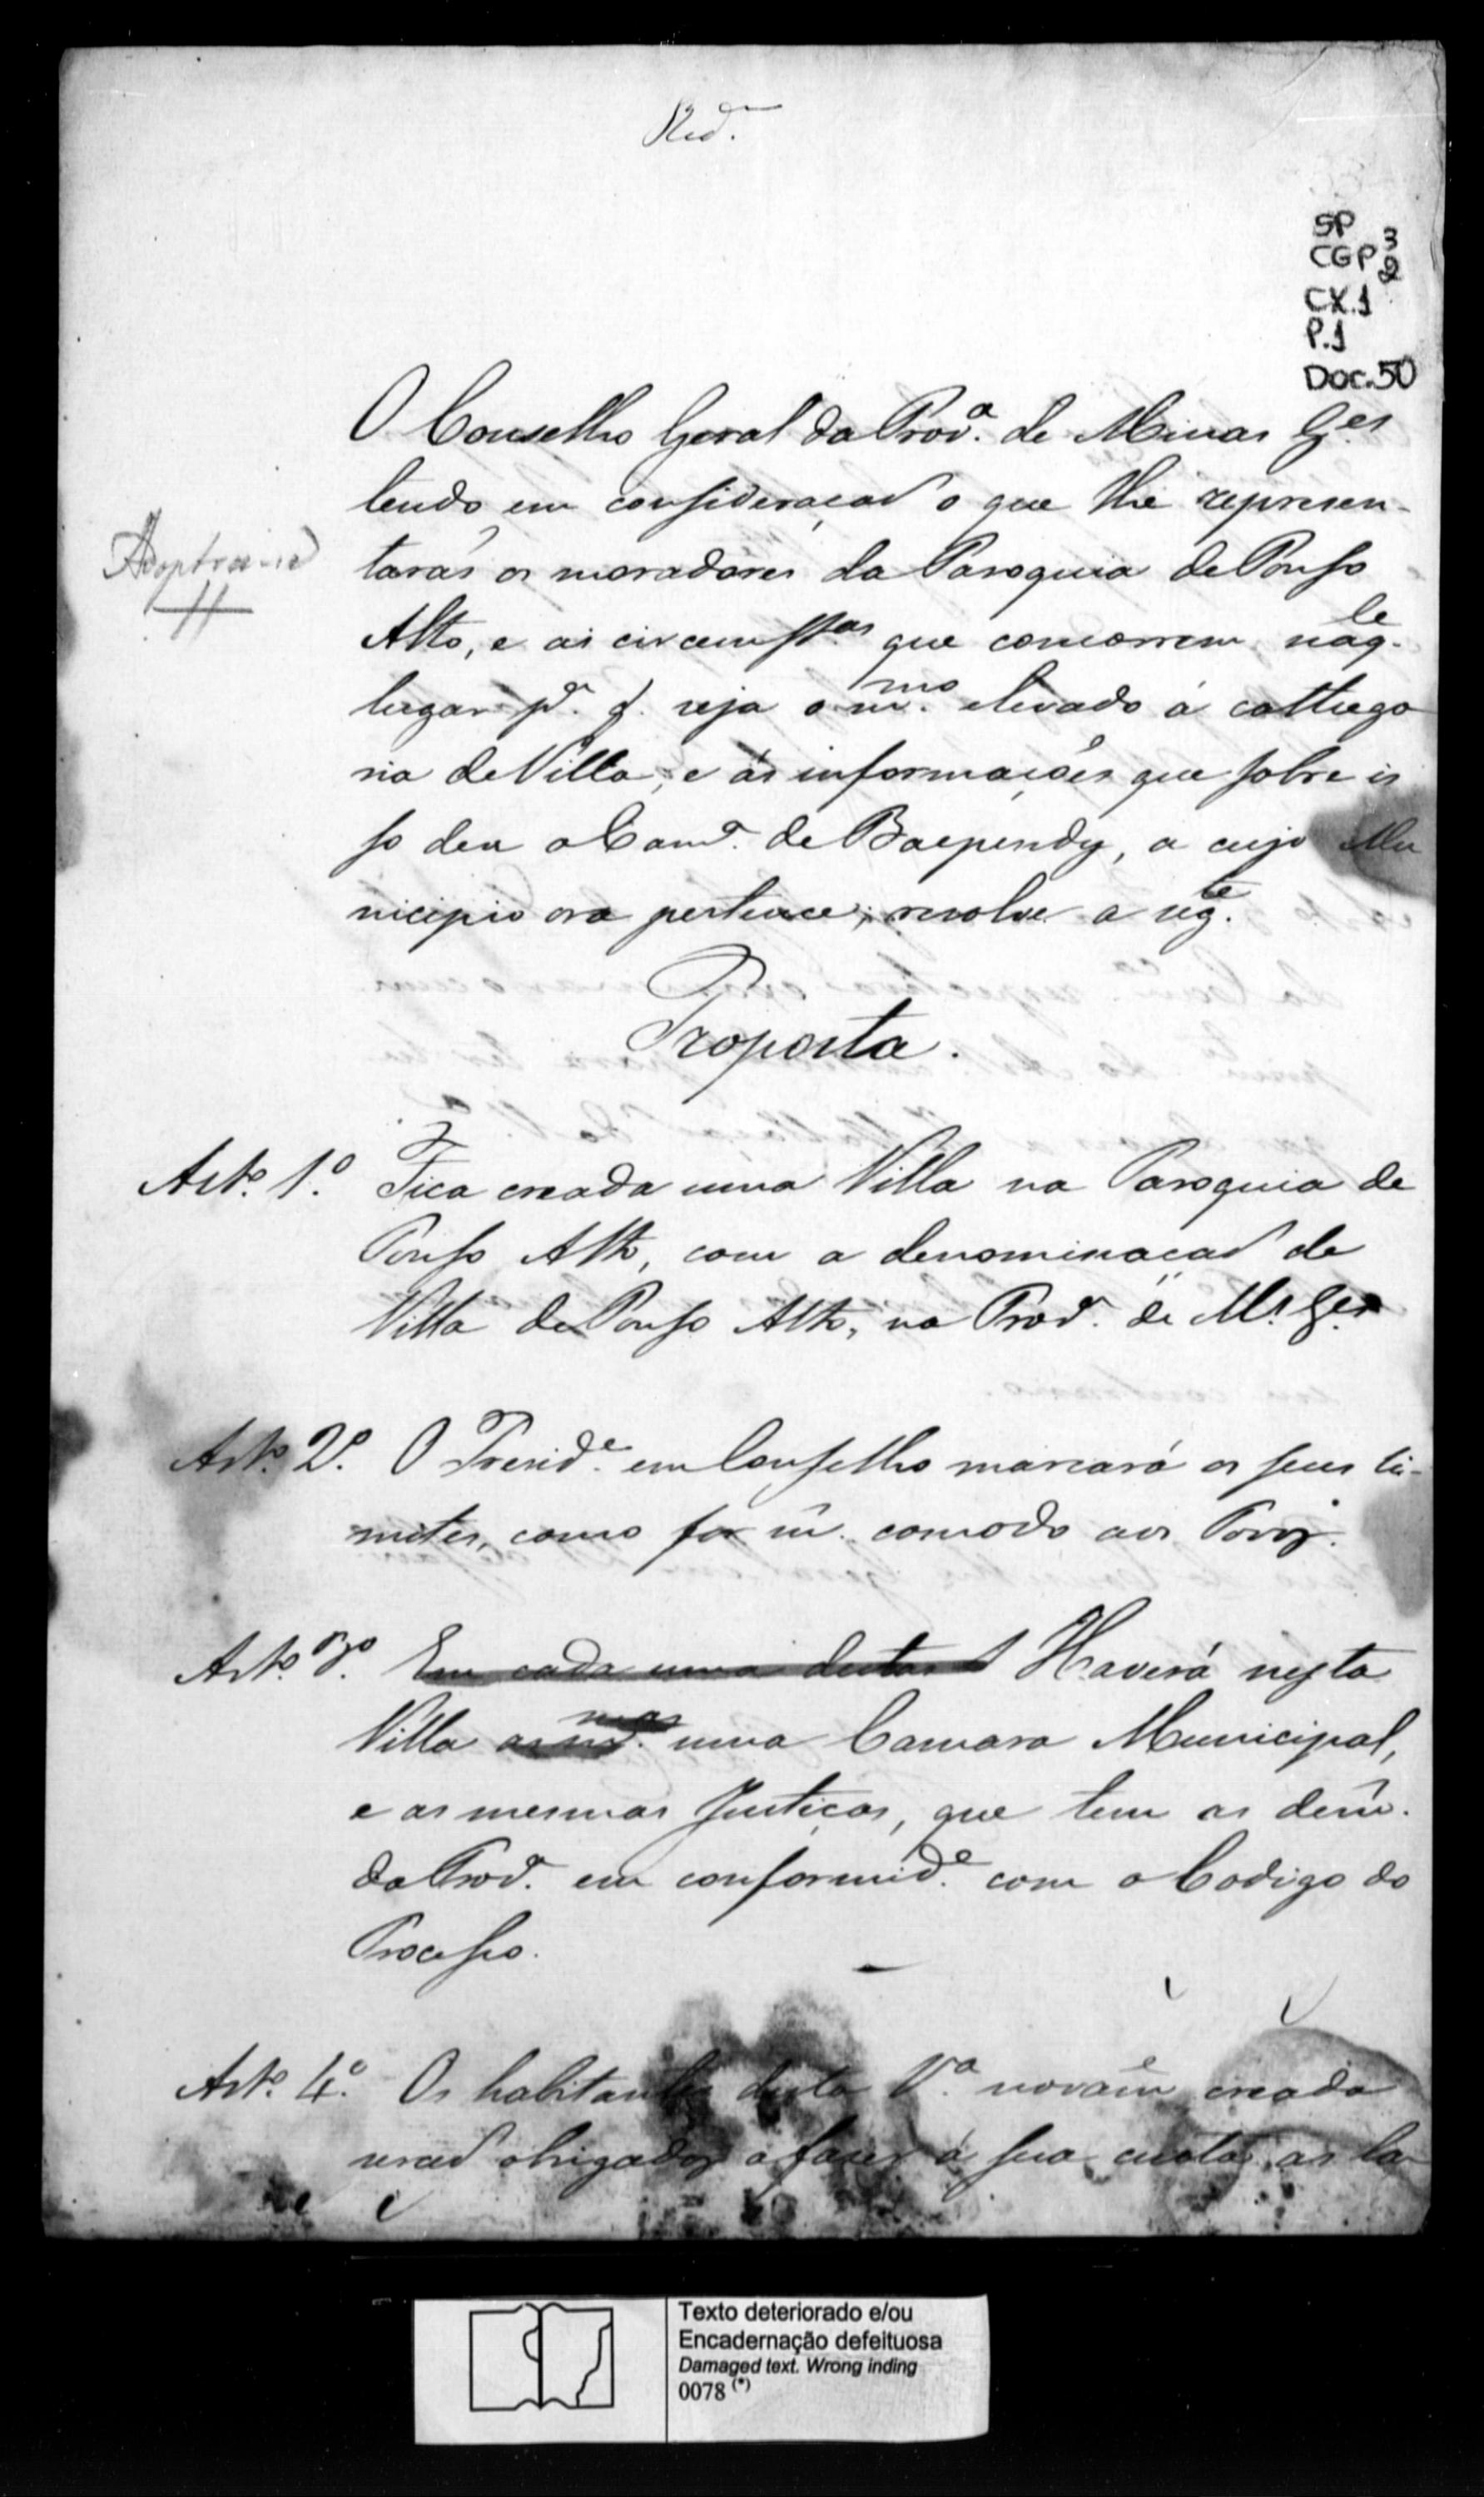 Red.ᵃᵐ
SP
CGP 3
2
CX.1
P.1
DOC.50
O Conselho Geral da Prov.ᵃ de Minas G.ᵉˢ
tendo em consideraçaõ o que lhe represen-
taraõ os moradores da Paroquia de Pouso
Adoptou-se
Alto, e as circumst.ᵃˢ que concorrem naq.ˡᵉ
lugar p.ᵃ q. seja o m.ᵐᵒ elevado á cathego
ria de Villa, e ás informações que sobre is
so deu a Cam.ᵃ de Baependy, a cujo Mu
nicipio ora pertence; resolve a seg.ᵗᵉ
Proposta.
Art.º 1.º Fica creada uma Villa na Paroquia de
Pouso Alto, com a denominaçaõ de
Villa de Pouso Alto, na Prov.ᵃ de M.ˢ G.ᵉˢ
Art.º 2.º O Presid.ᵉ em Conselho marcará os seus li-
mites, como for m. comodo aos Povos.
Art.º 3.º Em cada uma destas Haverá nesta
Villa as m.ᵐᵃˢ uma Camara Municipal,
e as mesmas Justiças, que tem as dem.
da Prov.ᵃ em conformid.ᵉ com o Codigo do
Processo.
Art.º 4.º Os habitantes desta V.ᵃ novam.ᵉ creada
seraõ obrigados a fazer á sua custa as Ca
Texto deteriorado e/ou
Encadernação defeituosa
Damaged text. Wrong inding
0078 (*)